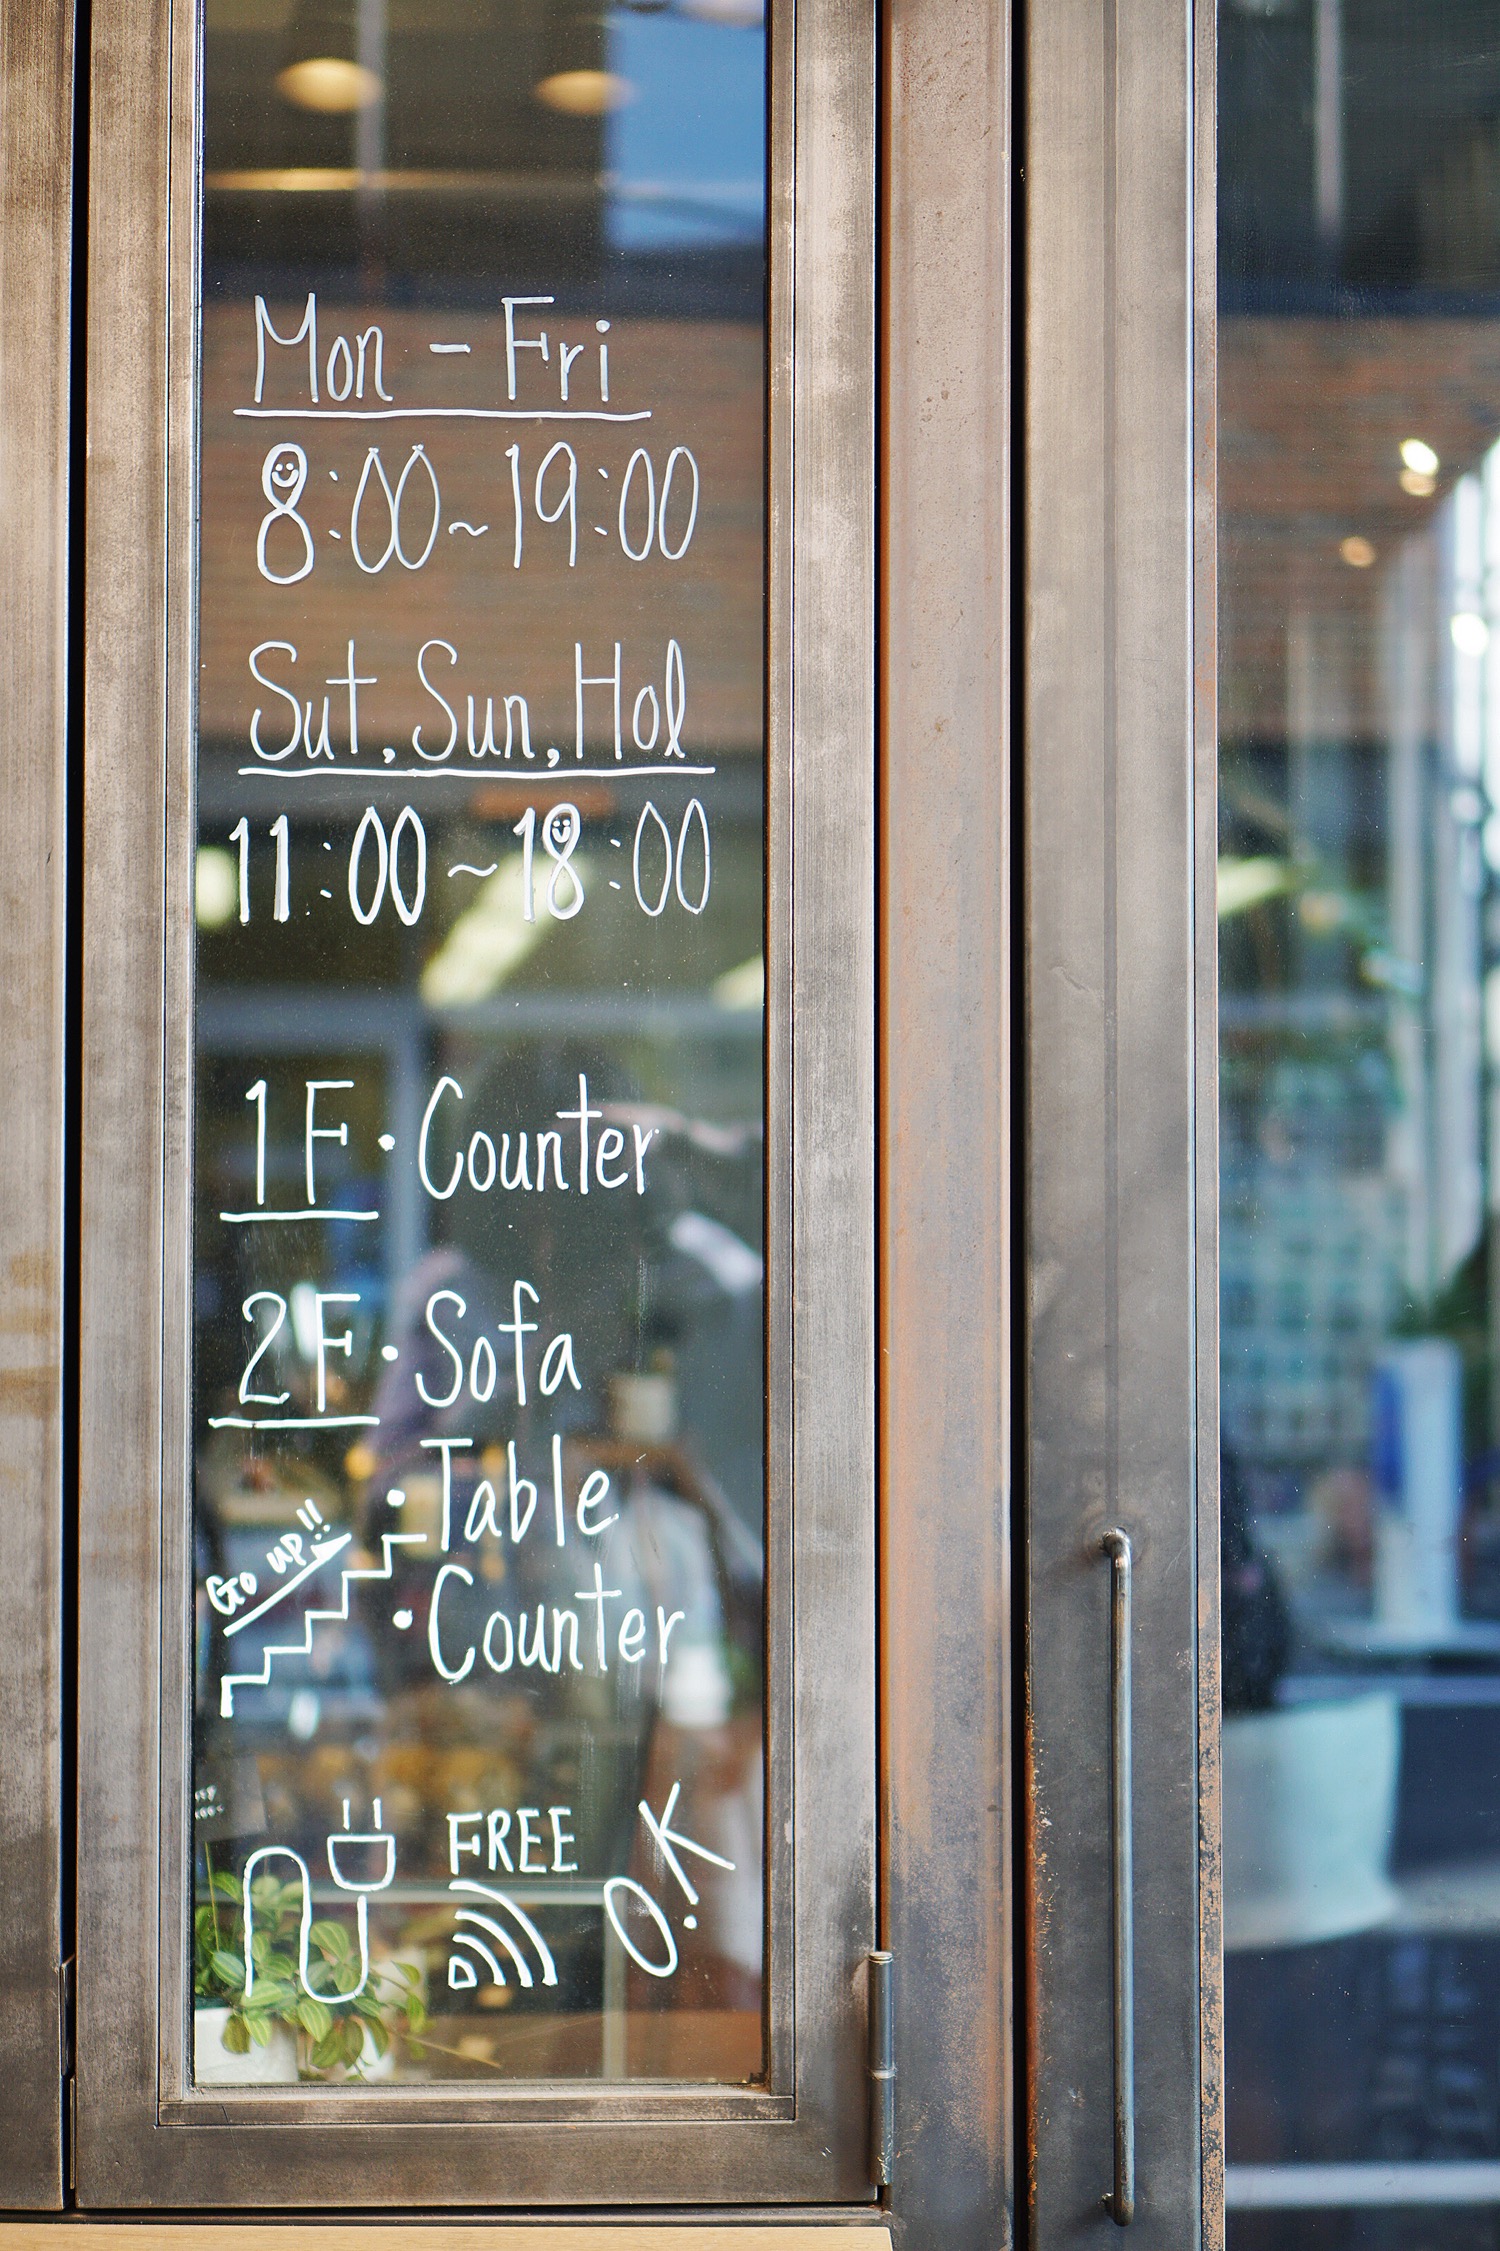 Mon - Fri
8:00~19:00
Sut, Sun, Hol
11:00~18:00
1F・Counter
2F・Sofa
・Table
Go up!!
・Counter
FREE
O.K